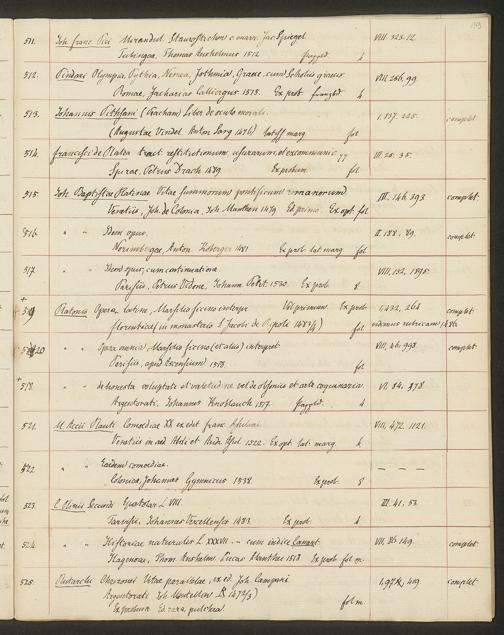 511. Joh. Franc. Pici Mirandul. Staurostichon c. enarr. Jac. Spiegel. VIII. 323. 12.
Tubingae, Thomas Anshelmus 1512 4
512. Pindari Olympia, Pythia, Nemea, Isthmia, Graece, cum Scholiis graecis VIII. 266. 99
Romae, Zacharias Calliergus 1515. Ex prob 4
513. Johannis Pithsani (Peckham) Liber de oculo morali. I. 137. 225. complet.
(Augustae Vindel. Anton Sorg 1476) latiss marg. fol
514. Francisci de Platea tract. restitutionum, usurarum, et excommunic. III. 25. 35.
Spirae, Petrus Drach 1489 Ex probum fol
515. Joh. Baptistae Platinae Vitae summorum pontificum romanorum III. 146. 393 complet.
Venetiis, Joh. de Colonia, Joh. Manthen 1479 Ed. prima. Ex opt. fol
516. " " Idem opus. II. 188. 89. complet.
Norimbergae, Anton. Koberger 1481 Ex prob. lat. marg. fol
517. " " Idem opus, cum continuatione VIII, 152, 1895.
Parisiis, Petrus Vidoue, Johann Petit. 1530. Ex prob 8
519 Platonis Opera latine, Marsilio ficino interpr. Ex prob 1,432, 264 complet
florentiae in monasterio S. Jacobi de Ripoli fol
520 " " Opera omnia, Marsilio ficino (et aliis) interpret. VIII, 46, 998. complet.
Parisiis, apud Ascensium 1518 fol
518. " " de honesta voluptate et valetudine vel de obsoniis et arte coquinaria VI. 84. 378.
Argentorati. Johannes Knoblauch 1517. 4
521. M. Accii Plauti Comoediae XX ex edit. franc. VIII, 472. 1121.
Venetiis in aed. Aldi et Andr. Asul. 1522. Ex opt. lat. marg. 4
522 " " Eaedem comoediae. — — —
Coloniae, Johannes Gymnicus 1538. Ex prob. 8
523. C. Plinii Secundi Epistolar. L VIII III. 41. 53.
Tarvisii, Johannes Vercellensis 1483. Ex prob. 4
524. " " Historiae naturalis L XXXVII — cum indice Camert. VII, 86. 149. complet.
Hagenoae, Thom. Anshelm. Lucas Alantsee 1518 Ex prob fol. m.
525. Plutarchi Chaeronei Vitae parallelae, ex ed. Joh. Campani complet
Argentorati Joh. Mentellin
Ex probum Ed rara, pulchra fol m.